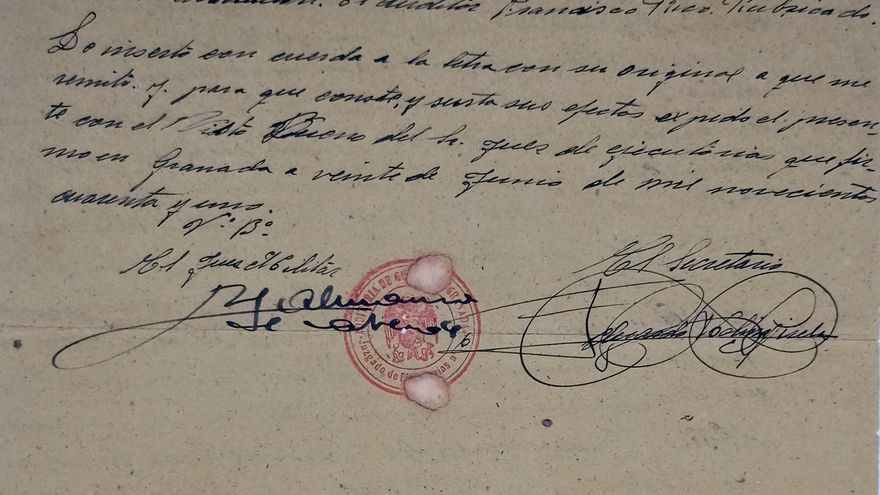 El Auditor Francisco Rico. Rubricado.
Lo inserto con cuerda a la letra con su original a que me
remito. Y para que conste, y surta sus efectos expido el presen-
te con el Visto Bueno del Sr. Juez de ejecutorias que fir-
mo en Granada a veinte de Junio de mil novecientos
cuarenta y uno.
Vº Bº
El Juez Militar
El Secretario
Juzgado de